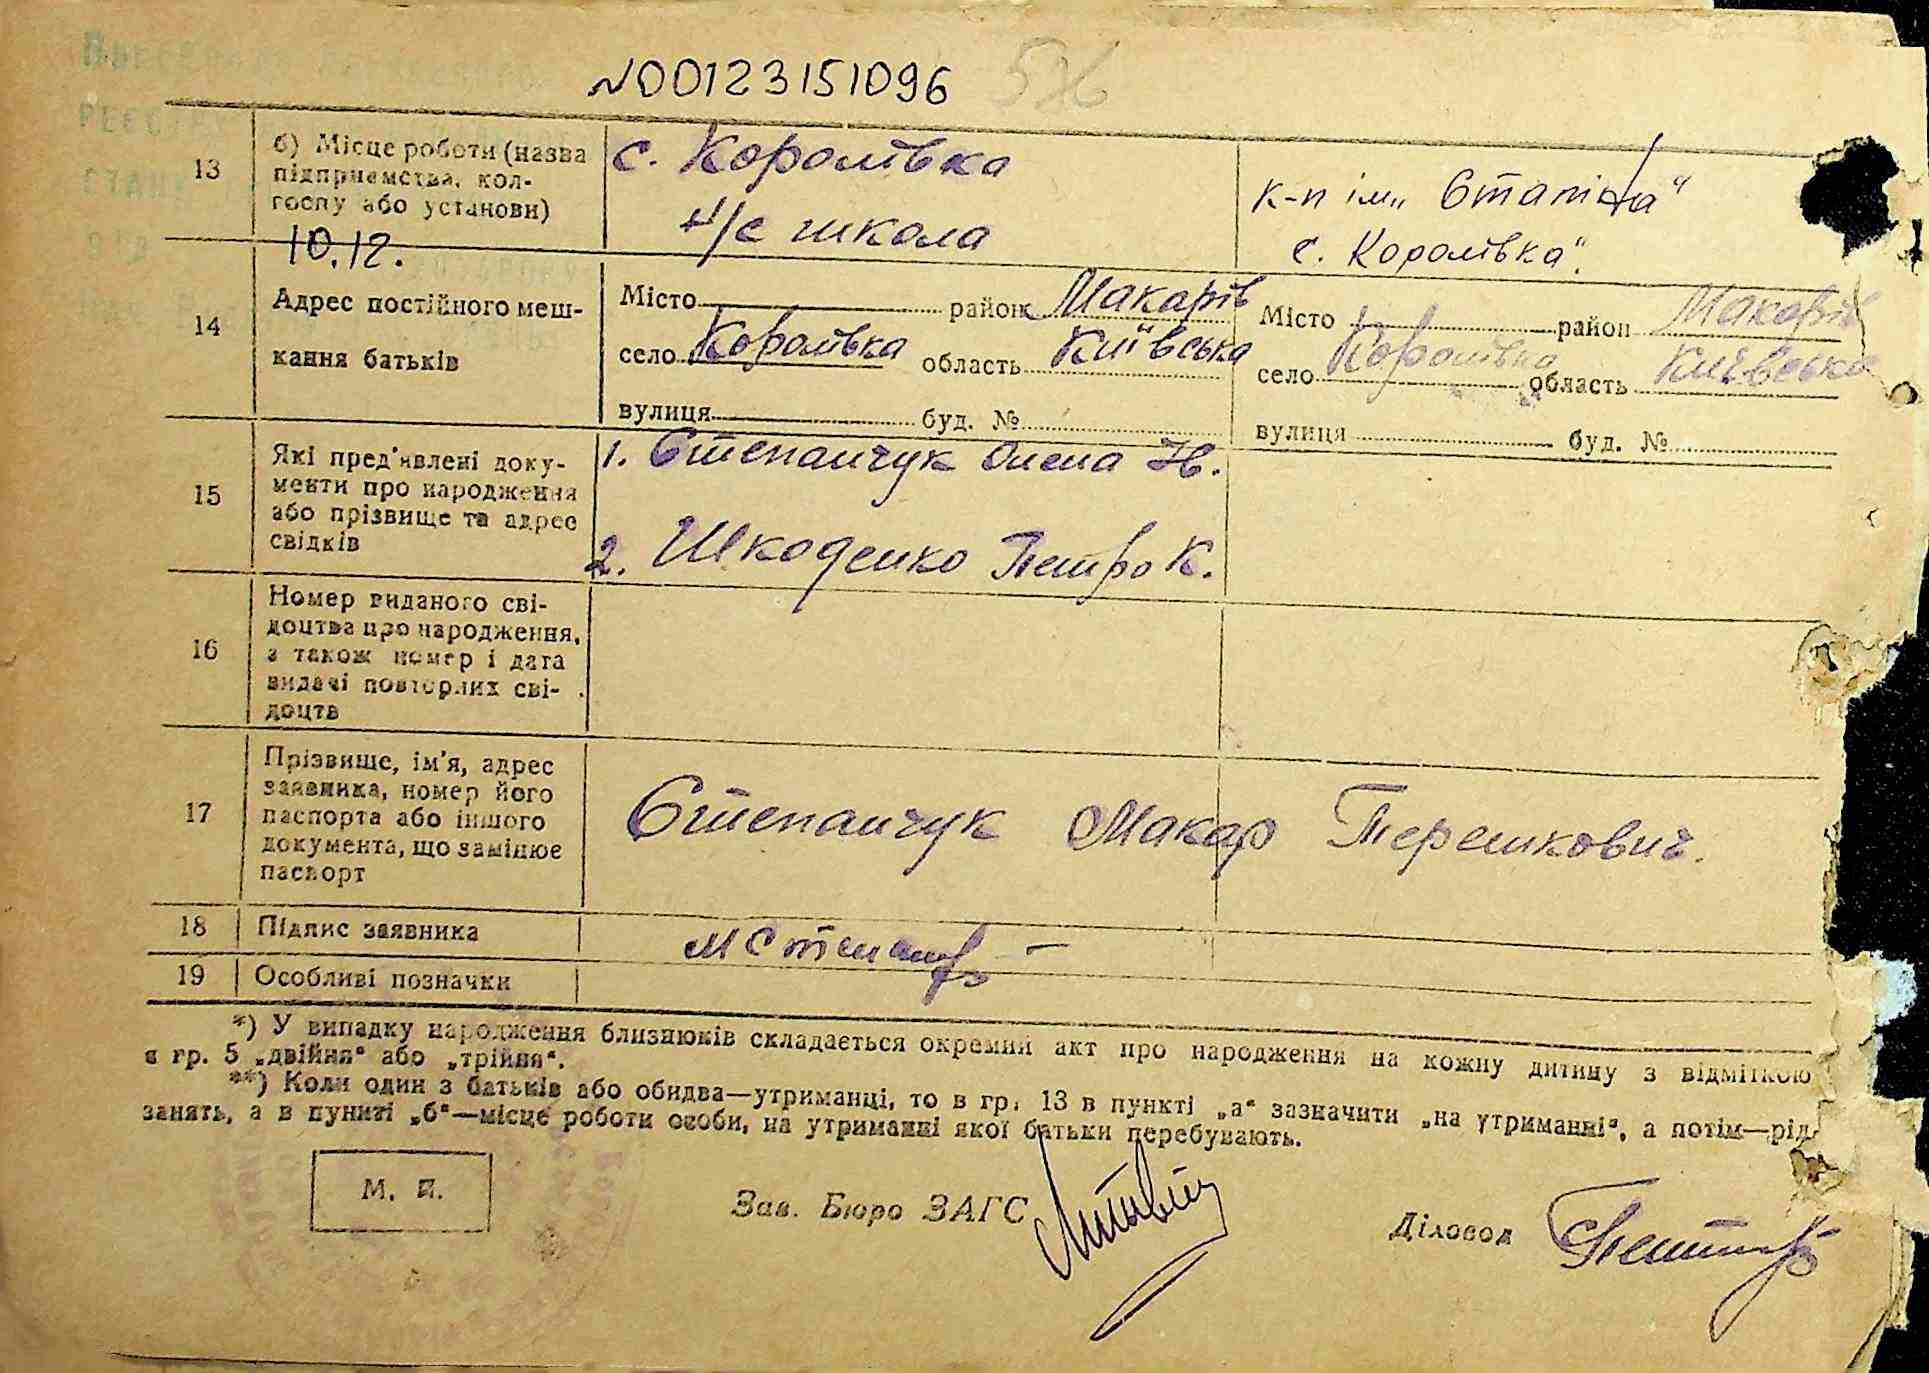 N00123151096
13
б) Місце роботи (назва
підприємства, кол-
госпу або установи)
с. Королівка
н/с школа
к-п ім „Сталіна“
с. Королівка“.
10.12.
14
Адрес постійного меш-
кання батьків
Місто район Макарів
село Королівка область Київська
вулиця буд. №
Місто район Макарів
село Королівка область Київська
вулиця буд. №
15
Які пред'явлені доку-
менти про народження
або прізвище та адрес
свідків
1. Степанчук Олена Н.
2. Шкоденко Петро К.
16
Номер виданого сві-
доцтва про народження,
а також номер і дата
видачі повторних сві-
доцтв
17
Прізвище, ім'я, адрес
заявника, номер його
паспорта або іншого
документа, що замінює
паспорт
Степанчук Макар Терешкович.
18 Підпис заявника
19 Особливі позначки
*) У випадку народження близнюків складається окремий акт про народження на кожну дитину з відміткою
в гр. 5 „двійня“ або „трійня“.
**) Коли один з батьків або обидва—утриманці, то в гр. 13 в пункті „а“ зазначити „на утриманні“, а потім—рід
занять, а в пункті „б“—місце роботи особи, на утриманні якої батьки перебувають.
М. П.
Зав. Бюро ЗАГС
Діловод